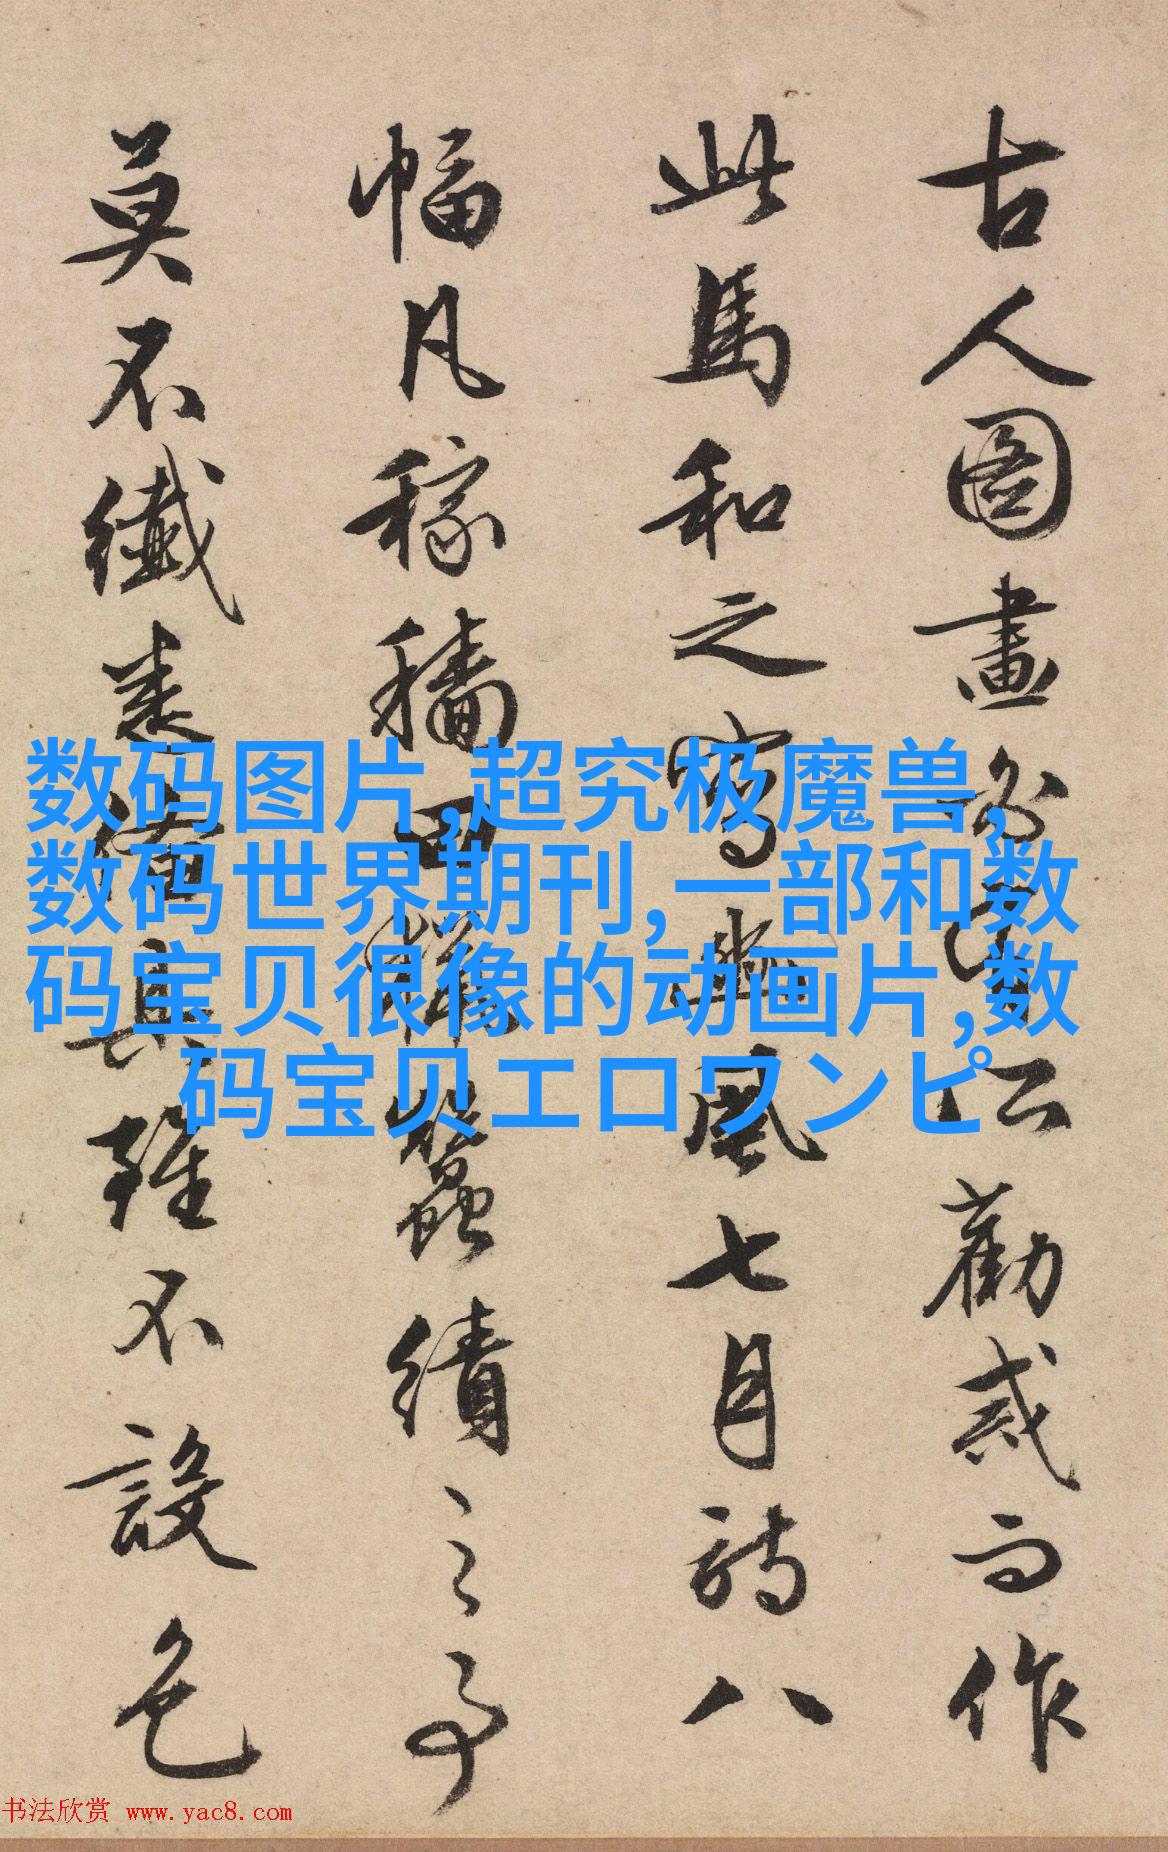 古人圖畫勸戒而作
此馬和之寫豳風七月詩八
幅凡稼穡田蠶績之事
莫不纖悉備具雖不設色
数码图片,超究极魔兽,
数码世界期刊,一部和数
码宝贝很像的动画片,数
码宝贝エロワンピ。
书法欣赏 www.yac8.com